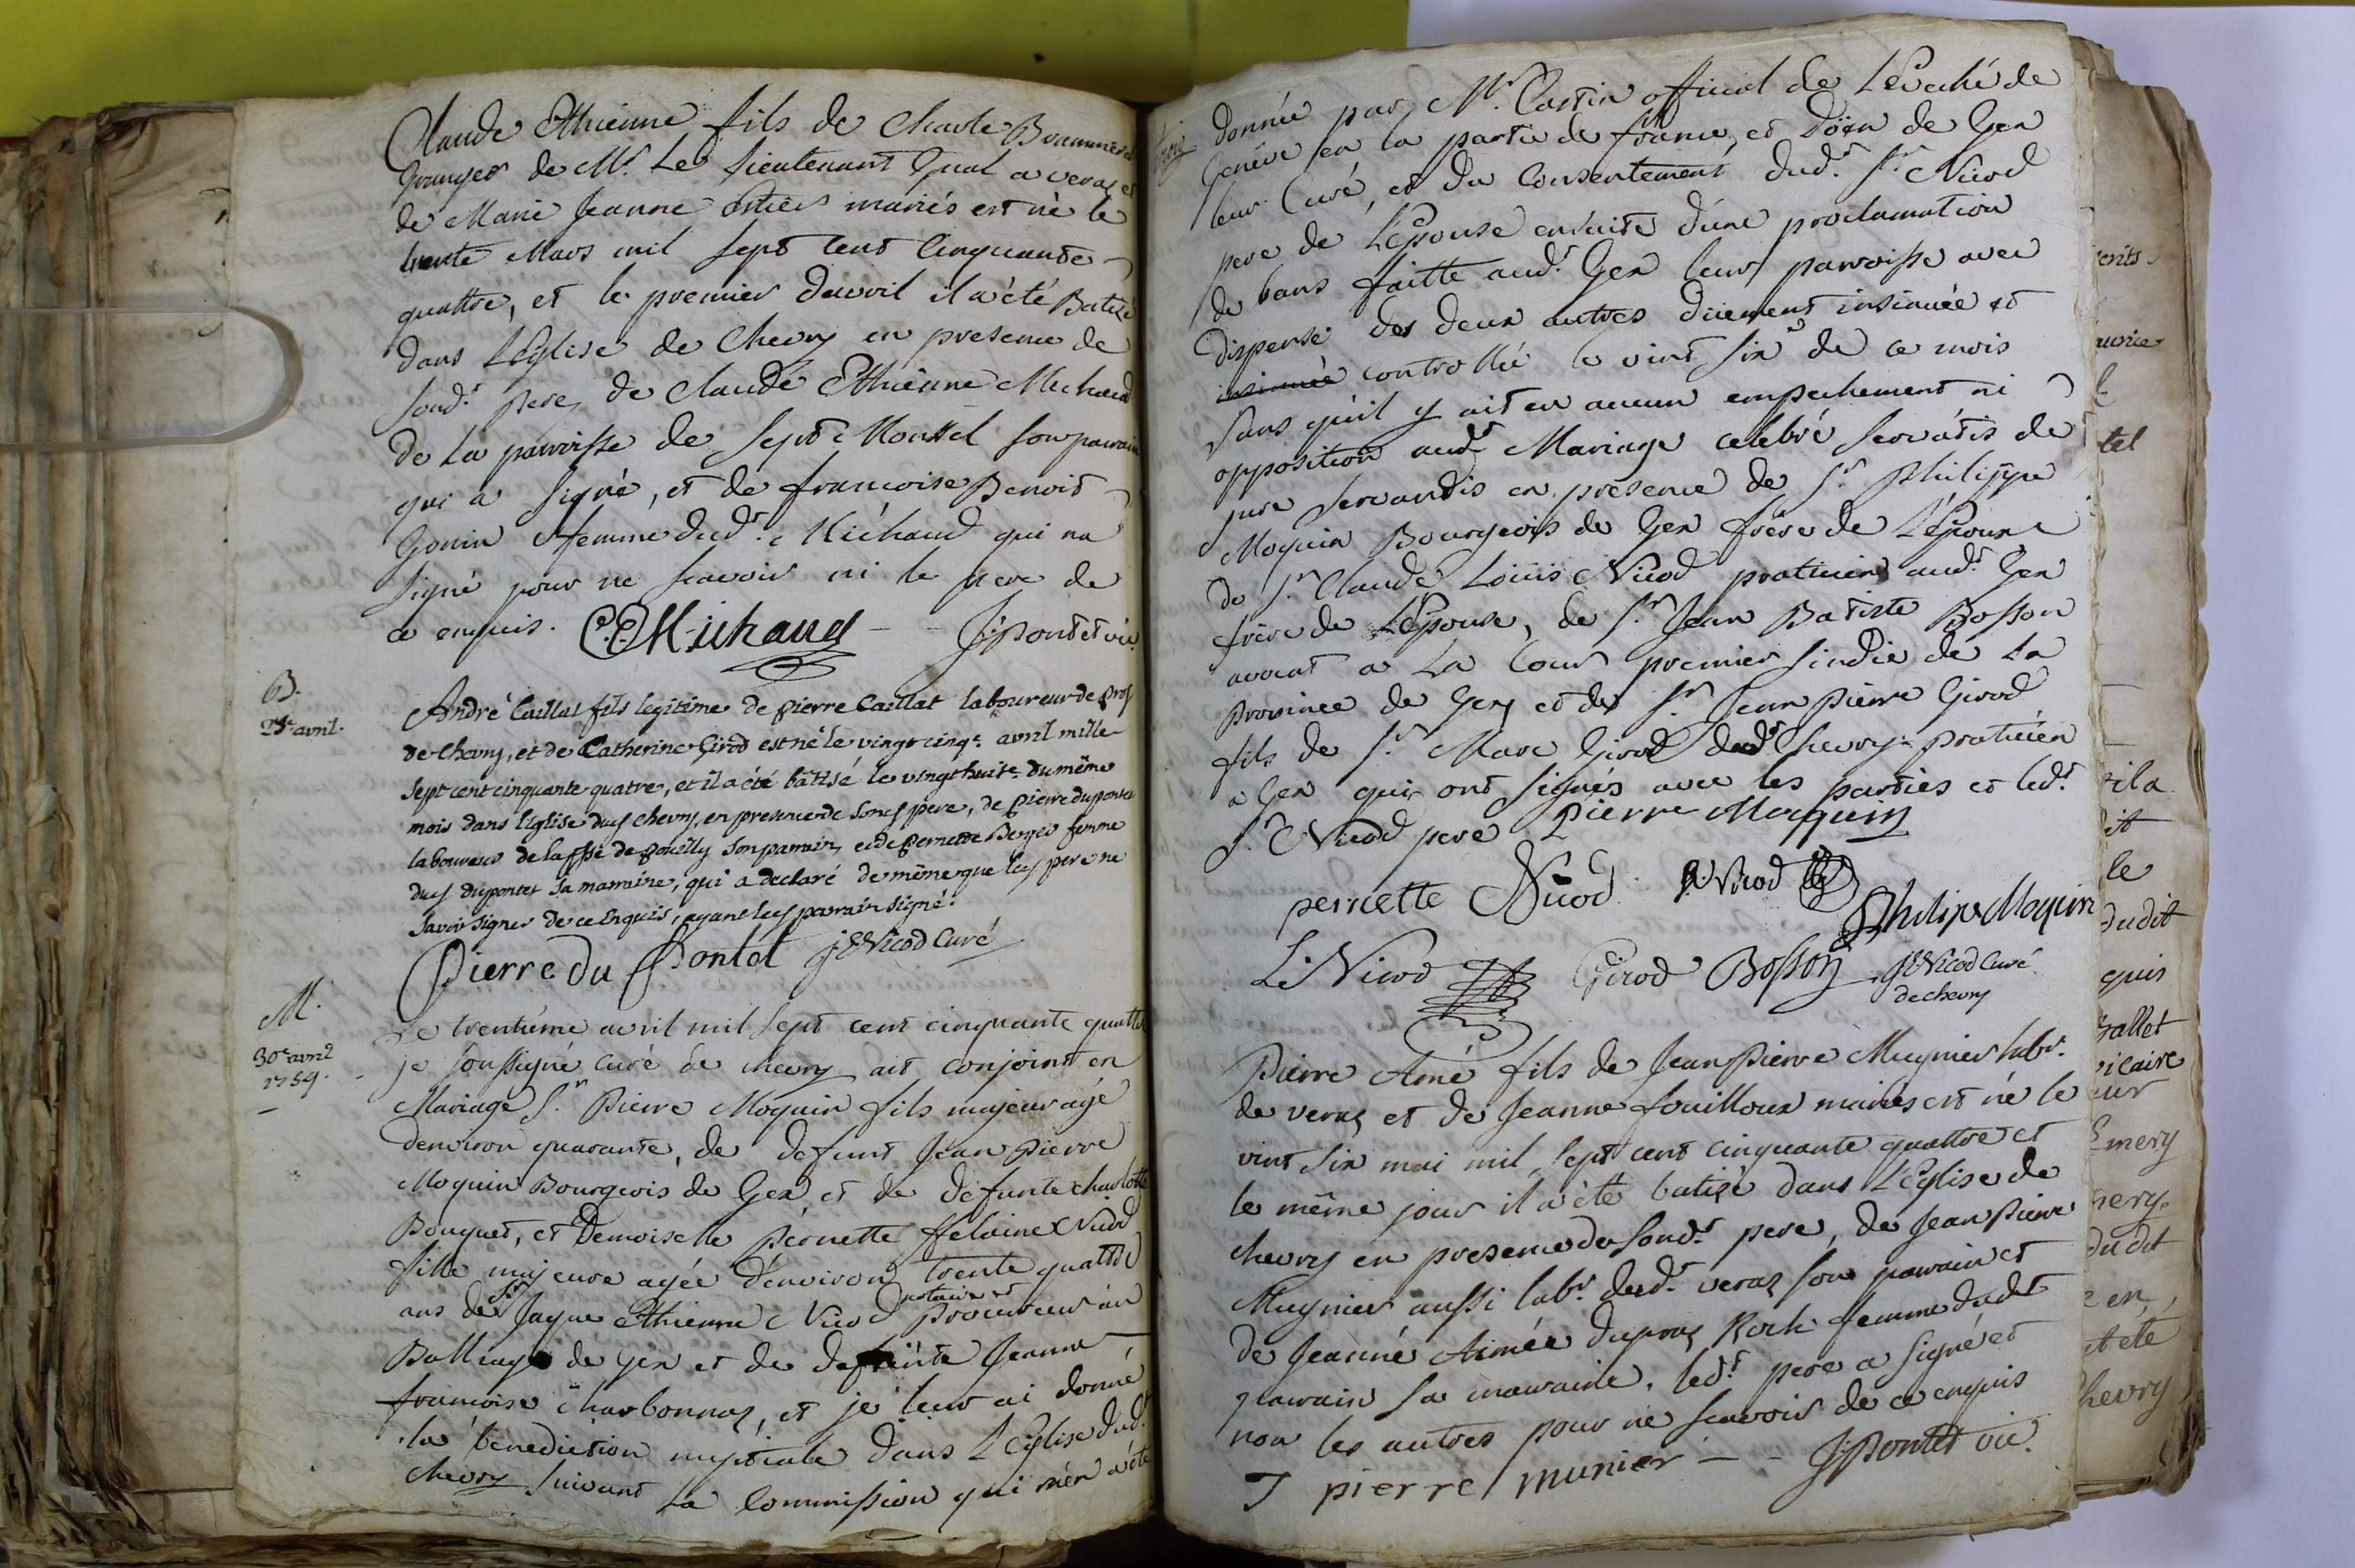 Claude Ethienne fils de Charle
Granger de Mr. Le Lieutenant Gnal a veraz et
de Marie Jeanne mariés est né le
trente Mars mil sept cent cinquante
quattre, et le premier davril il a été Batizé
dans L'Eglise de Chevry en presence de
sond.t pere, de Claude Ethienne Michaud
de La parroisse de Sept Monssel son parrain
qui a signé, et de francoise Benoit
Gonin femme dud.t Michaud qui na
signé pour ne scavoir ni le pere de
ce enquis. C.E. Michaud - - J: pontet vic.
B.
André Caillat fils legitime de pierre Caillat laboureur de
25e avril.
de chevry, et de Catherine Girod est né le vingt cinqe. avril mille
sept cent cinquante quatre, et il a été bâtisé le vingthuite. du même
mois dans l'église dud chevry, en presence de sond pere, de pierre duponte
laboureur de la psse de pouilly son parrain, et de pernette Berger femme
dud dupontet sa marraine, qui a declaré de même que led pere ne
savoir signer de ce Enquis, ayant led parrain signé.
Pierre du Pontet JE Nicod Curé
M.
Le trentiéme avril mil sept cent cinquante quattre
30e avril
je soussigné curé de chevry ait conjoint en
1754.
Mariage Sr. Pierre Moquin fils majeur agé
denviron quarante, de defunt Jean Pierre
Moquin Bourgeois de Gex et de defunte charlotte
Bouquet, et Demoiselle Pernette Nicod
fille majeure agée d'environ trente quattre
ans de Sr Jaque Ethienne Nicod notaire et procureur au
Balliage de gex et de defunte Jeanne
francoise charbonnaz, et je leur ai donné
la benediction nuptiale dans L'Eglise dud.t
Chevry suivant La Commission qui m'en a été
donnée par Mr. Castin official de L'Evéché de
Genève en la partie de france, et Doïen de Gex
leur Curé, et du Consentement dud.t Sr. Nicod
pere de L'Epouse ensuite d'une proclamation
de bans faitte aud.t Gex leur parroisse avec
dispense des deux autres düement insinuée et
insinuée controllée le vint six de ce mois
sans qu'il y ait eu aucun empechement ni
opposition aud.t Mariage celebré servatis de
jure servandis en presence de Sr. Philippe
Moquin Bourgeois de Gex frère de L'Epoux
de Sr. Claude Loüis Nicod praticien aud.t Gex
frère de L'Epouse, de Sr. Jean Batiste Bosson
avocat a La Cour premier sindic de La
Province de Gex et de Sr. Jean Pierre Girod
fils de Sr. Marc Girod dud.t Chevry praticien
a Gex qui ont signés avec les parties et led.t
Sr. Nicod pere Pierre Moquin
pernette Nicod Nicod Philipe Moquin
L. Nicod Girod Bosson JE Nicod Curé
de chevry
Pierre Amé fils de Jean Pierre Mugnier labr.
de veraz et de Jeanne fouilloux mariés est né le
vint six mai mil sept cent cinquante quattre et
le même jour il a été batizé dans L'Eglise de
chevry en presence de sond.t pere, de Jean Pierre
Mugnier aussi labr. dud.t veraz son parrain et
de Jeanne Aimée dupraz Roch femme dud.t
parrain sa marraine. led.t pere a signé et
non les autres pour ne scavoir de ce enquis
J pierre munier - - J: Pontet vic.
tel
le
dudit
quis
vicaire
eur
Emery
dudit
été
chevry